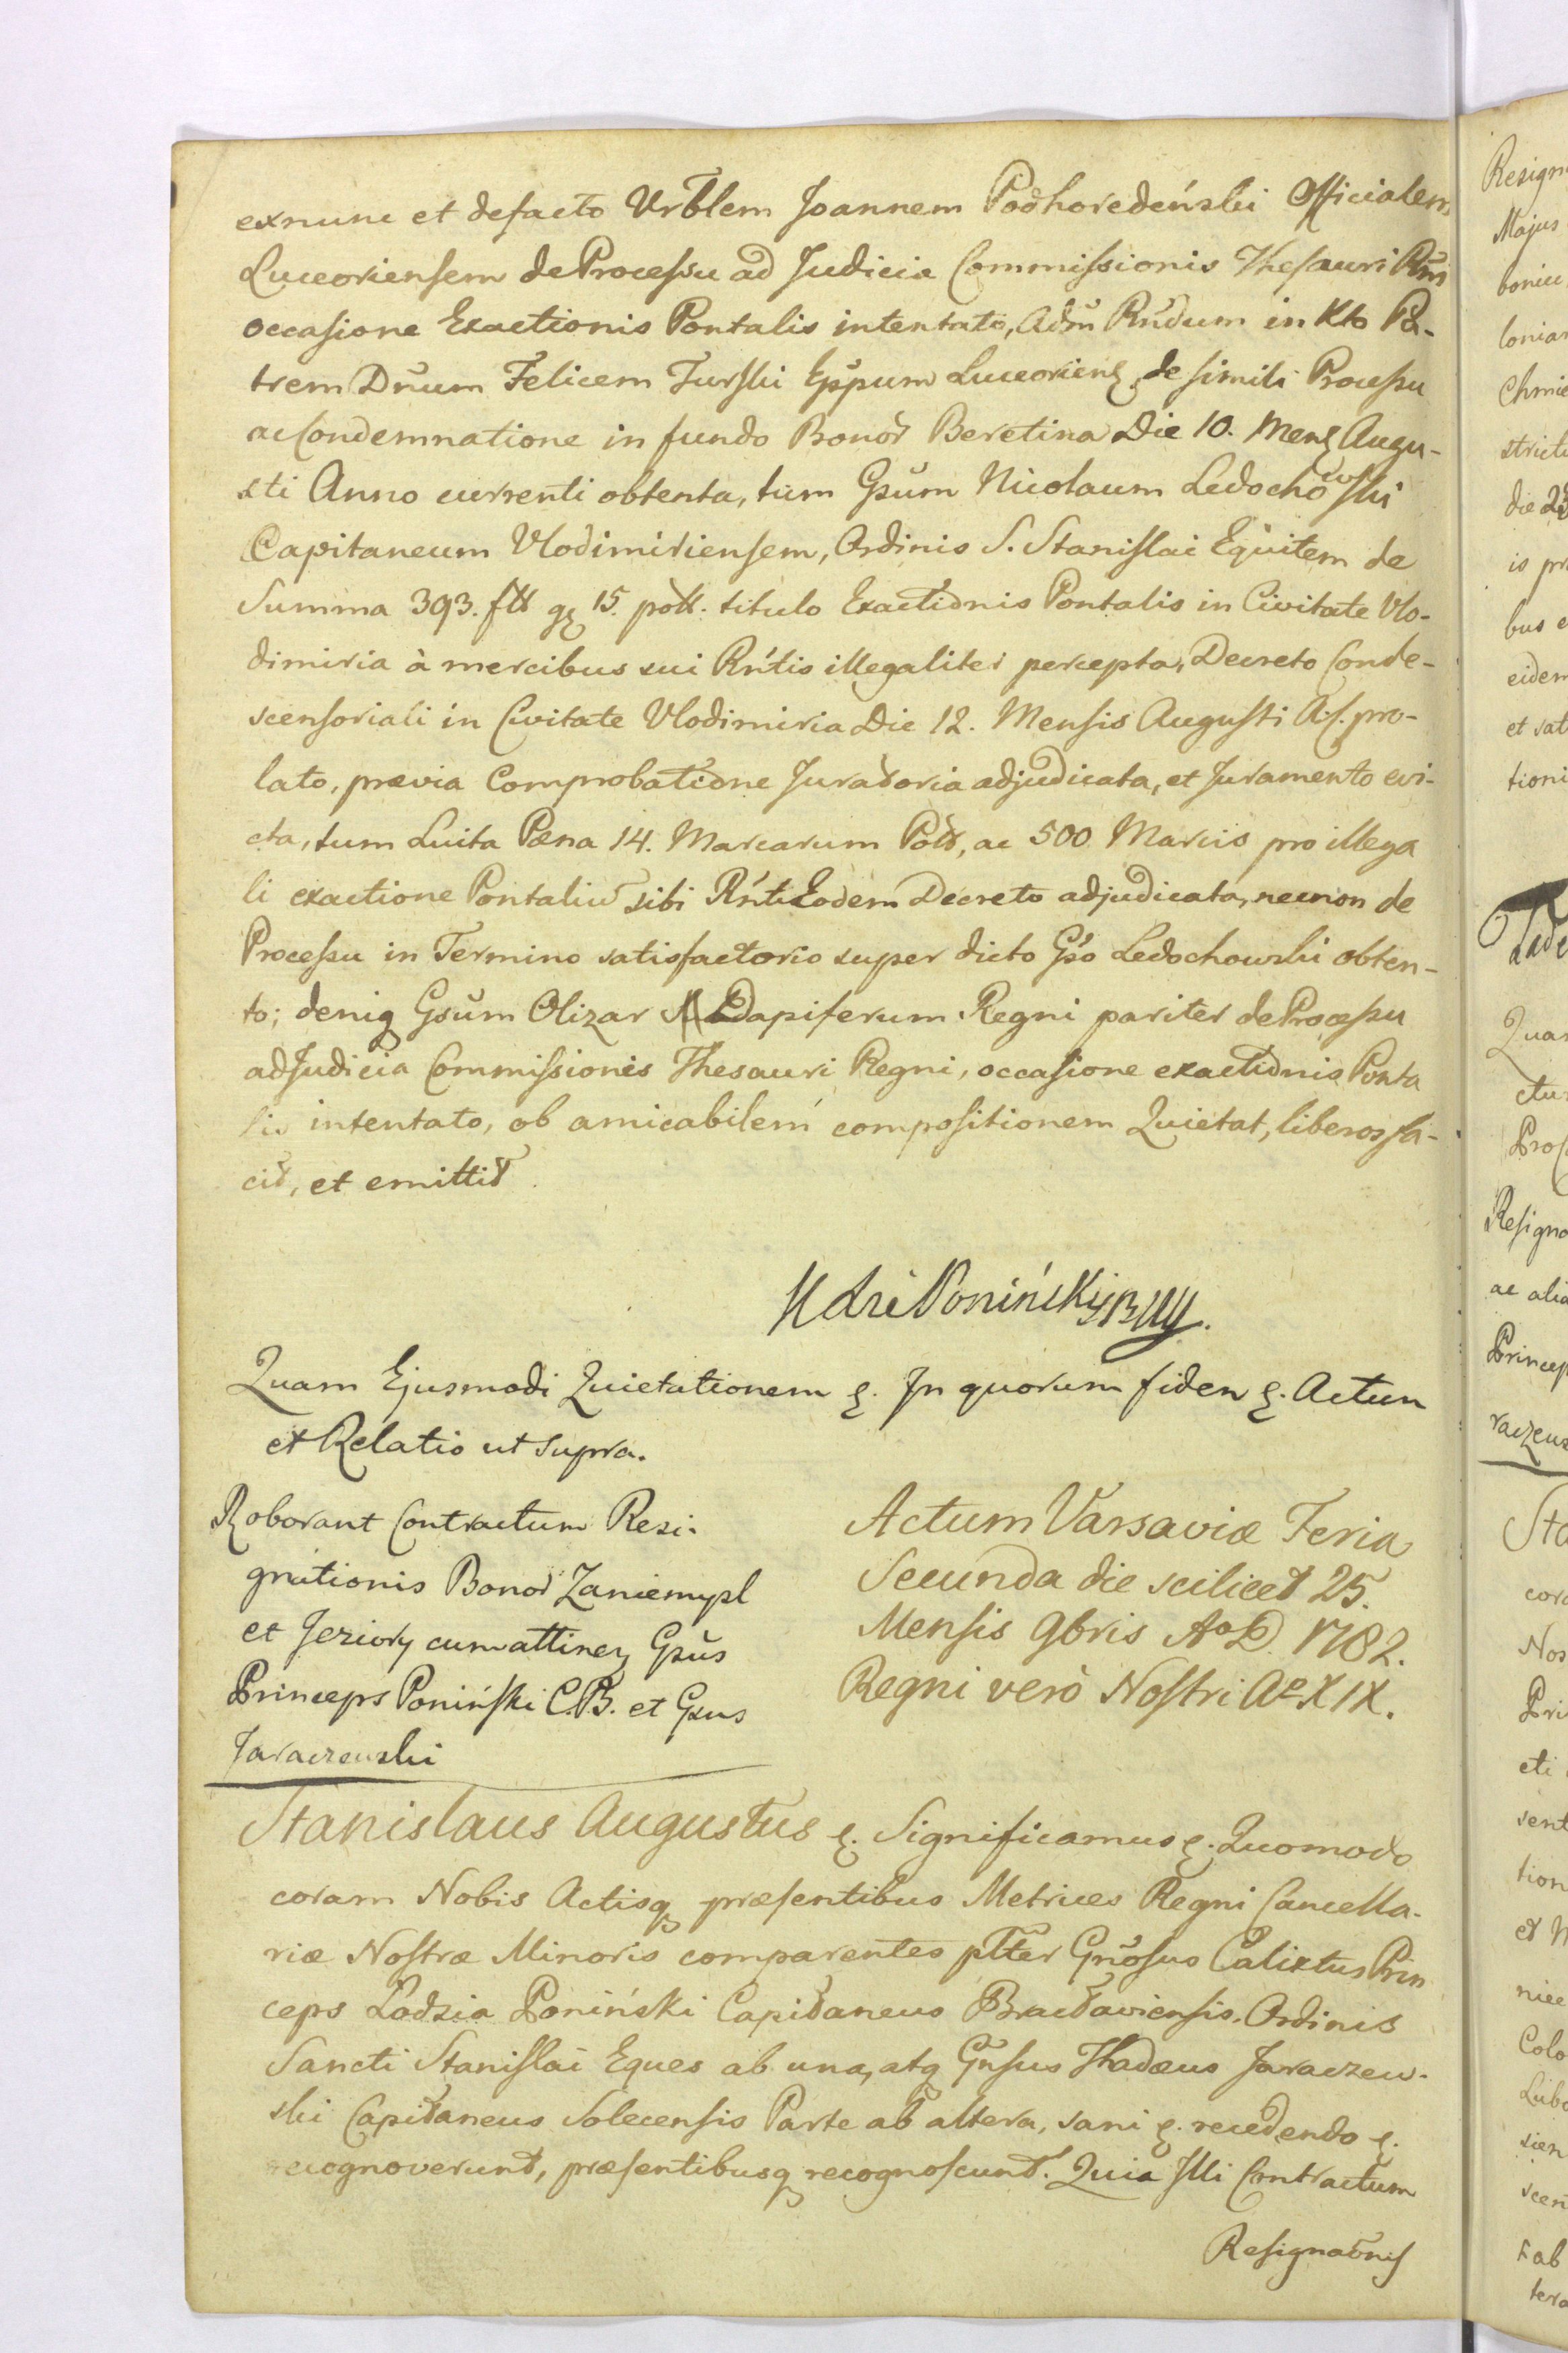 exnunc et defacto Urblem Joannem Podhoredeński Officialem
Luceoriensem de Processu ad Judicia Commissionis Thesauri Rńi
occasione Exactionis Pontalis intentato, Adm Rńdum in Xto Pa-
trem Dńum Felicem Turski Eppum Luceorien de simili Processu
ac Condemnatione in fundo Bonor Beretina Die 10. Mens Augu-
sti Anno currenti obtenta, tum Gsum Nicolaum Ledochowski
Capitaneum Vlodimiriensem, Ordinis S. Stanislai Equitem de
Summa 393. fll gs 15. poll. titulo Exactionis Pontalis in Civitate Vlo-
dimiria à mercibus sui Rńtis illegaliter percepta, Decreto Conde-
scensoriali in Civitate Vlodimiria Die 12. Mensis Augusti A. c. pro-
lato, prævia Comprobatione Juratoria adjudicata, et Juramento evi-
cta, tum Luita Pæna 14. Marcarum Poll, ac 500 Marcis pro illega
li exactione Pontaliu sibi Rńti Eodem Decreto adjudicata, necnon de
Processu in Termino satisfactorio super dicto Gso Ledochowski obten-
to; deniq Gsum Olizar Dapiferum Regni pariter de Processu
ad Judicia Commissionis Thesauri Regni, occasione exactionis Ponta
lis intentato, ob amicabilem compositionem Quietat, liberos fa-
cit, et emittit.
Poniński
Quam Ejusmodi Quietationem &. In quorum fidem &. Actum
et Relatio ut supra.
Roborant Contractum Resi-
gnationis Bonor Zaniemysl
et Jeziory cum attinen Gsus
Princeps Poniński C. B. et Gsus
Jaraczewski
Actum Varsaviæ Feria
Secunda die scilicet 25.
Mensis 9bris Ao D. 1782.
Regni verò Nostri Ao XIX.
Stanislaus Augustus &. Significamus &. Quomodo
coram Nobis Actisq præsentibus Metrices Regni Cancella-
riæ Nostræ Minoris comparentes plter Gnosus Calixtus Prin
ceps Lodzia Poniński Capitaneus Braclaviensis. Ordinis
Sancti Stanislai Eques ab una, atq Gnsus Thadæus Jaraczew-
ski Capitaneus Solecensis Parte ab altera, sani &. recedendo &.
recognoverunt, præsentibusq recognoscunt. Quia Illi Contractum
Resignaonis